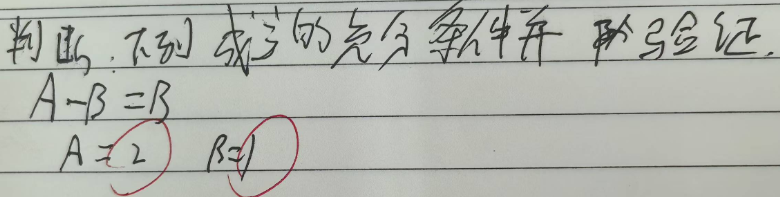 判断:下列或话的充分条件并 验证.
A-B=B
A=2 B=1